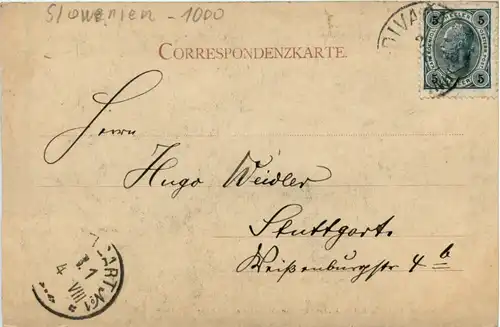 Slowenien - 1000
CORRESPONDENZKARTE.
DIVA
5 5
5 5
Herrn
Hugo Weidler
Stuttgart.
Weißenburgstr 4 b
TGART. No 1
4 VIII